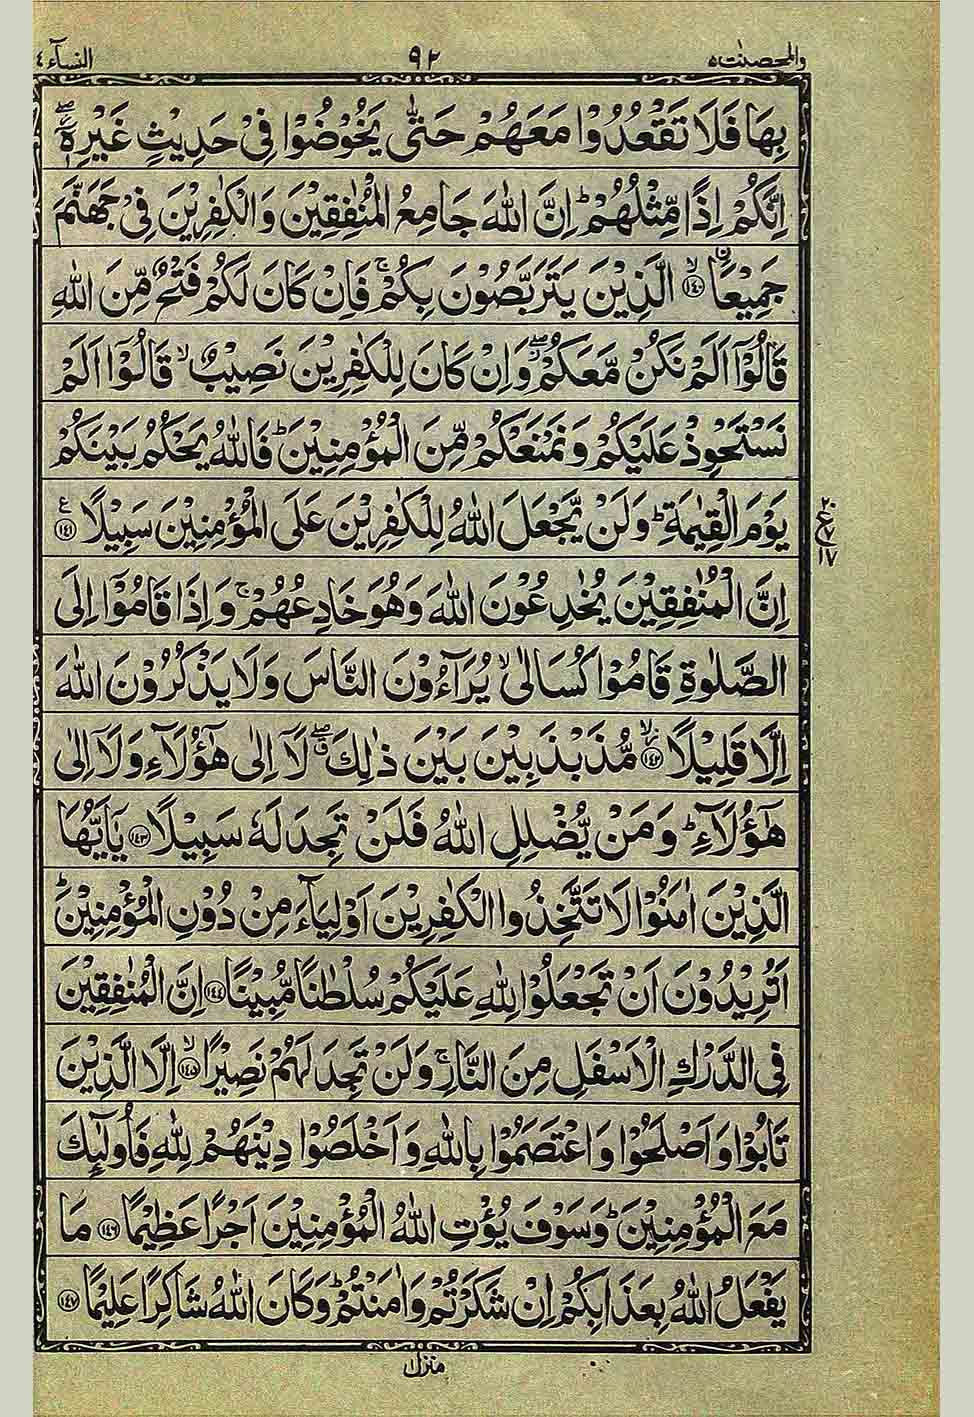 والمحصنٰت ۵ ۹۲ النسآء ۴
بِهَا فَلَا تَقْعُدُوْا مَعَهُمْ حَتّٰى يَخُوْضُوْا فِيْ حَدِيْثٍ غَيْرِهٖٓ ۖ
اِنَّكُمْ اِذًا مِّثْلُهُمْ ؕ اِنَّ اللّٰهَ جَامِعُ الْمُنٰفِقِيْنَ وَالْكٰفِرِيْنَ فِيْ جَهَنَّمَ
جَمِيْعًا ۙ﴿۱۴۰﴾ الَّذِيْنَ يَتَرَبَّصُوْنَ بِكُمْ ۚ فَاِنْ كَانَ لَكُمْ فَتْحٌ مِّنَ اللّٰهِ
قَالُوْٓا اَلَمْ نَكُنْ مَّعَكُمْ ۖ وَاِنْ كَانَ لِلْكٰفِرِيْنَ نَصِيْبٌ ۙ قَالُوْٓا اَلَمْ
نَسْتَحْوِذْ عَلَيْكُمْ وَنَمْنَعْكُمْ مِّنَ الْمُؤْمِنِيْنَ ؕ فَاللّٰهُ يَحْكُمُ بَيْنَكُمْ
يَوْمَ الْقِيٰمَةِ ؕ وَلَنْ يَّجْعَلَ اللّٰهُ لِلْكٰفِرِيْنَ عَلَى الْمُؤْمِنِيْنَ سَبِيْلًا ﴿۱۴۱﴾ ع
۲۰ ع ۷ ۱۷
اِنَّ الْمُنٰفِقِيْنَ يُخٰدِعُوْنَ اللّٰهَ وَهُوَ خَادِعُهُمْ ۚ وَاِذَا قَامُوْٓا اِلَى
الصَّلٰوةِ قَامُوْا كُسَالٰى ۙ يُرَآءُوْنَ النَّاسَ وَلَا يَذْكُرُوْنَ اللّٰهَ
اِلَّا قَلِيْلًا ۙ﴿۱۴۲﴾ مُّذَبْذَبِيْنَ بَيْنَ ذٰلِكَ ۖ لَآ اِلٰى هٰٓؤُلَآءِ وَلَآ اِلٰى
هٰٓؤُلَآءِ ؕ وَمَنْ يُّضْلِلِ اللّٰهُ فَلَنْ تَجِدَ لَهٗ سَبِيْلًا ﴿۱۴۳﴾ يٰٓاَيُّهَا
الَّذِيْنَ اٰمَنُوْا لَا تَتَّخِذُوا الْكٰفِرِيْنَ اَوْلِيَآءَ مِنْ دُوْنِ الْمُؤْمِنِيْنَ ؕ
اَتُرِيْدُوْنَ اَنْ تَجْعَلُوْا لِلّٰهِ عَلَيْكُمْ سُلْطٰنًا مُّبِيْنًا ﴿۱۴۴﴾ اِنَّ الْمُنٰفِقِيْنَ
فِي الدَّرْكِ الْاَسْفَلِ مِنَ النَّارِ ۚ وَلَنْ تَجِدَ لَهُمْ نَصِيْرًا ۙ﴿۱۴۵﴾ اِلَّا الَّذِيْنَ
تَابُوْا وَاَصْلَحُوْا وَاعْتَصَمُوْا بِاللّٰهِ وَاَخْلَصُوْا دِيْنَهُمْ لِلّٰهِ فَاُولٰٓئِكَ
مَعَ الْمُؤْمِنِيْنَ ؕ وَسَوْفَ يُؤْتِ اللّٰهُ الْمُؤْمِنِيْنَ اَجْرًا عَظِيْمًا ﴿۱۴۶﴾ مَا
يَفْعَلُ اللّٰهُ بِعَذَابِكُمْ اِنْ شَكَرْتُمْ وَاٰمَنْتُمْ ؕ وَكَانَ اللّٰهُ شَاكِرًا عَلِيْمًا ﴿۱۴۷﴾
منزل ۱